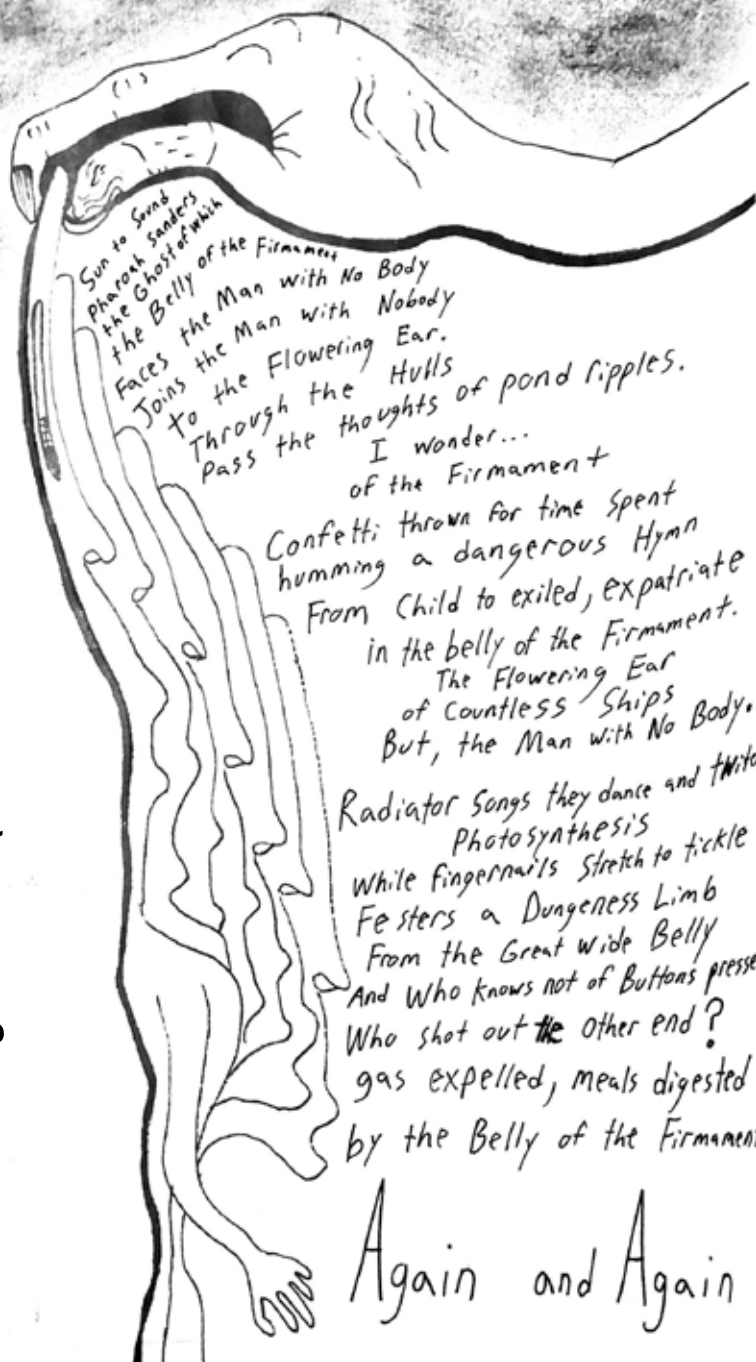 Sun to Sound
Pharoah sanders
the Ghost of which
the Belly of the Firmament
Faces the Man with No Body
Joins the Man with Nobody
to the Flowering Ear.
Through the Hulls
Pass the thoughts of pond ripples.
I wonder...
of the Firmament
Confetti thrown for time spent
humming a dangerous Hymn
From Child to exiled, expatriate
in the belly of the Firmament.
The Flowering Ear
of Countless Ships
But, the Man with No Body.
Radiator Songs they dance and
Photosynthesis
While fingernails Stretch to tickle
Festers a Dungeness Limb
From the Great Wide Belly
And Who knows not of Buttons presse
Who shot out the other end?
gas expelled, meals digested
by the Belly of the Firmament
Again and Again